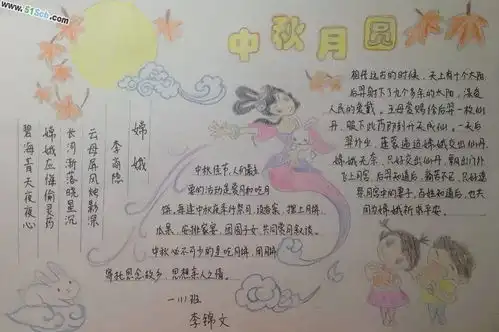 www.51Sob.com
中秋月圆
嫦娥
李商隐
云母屏风烛影深
长河渐落晓星沉
嫦娥应悔偷灵药
碧海青天夜夜心
中秋佳节,人们最主
要的活动是赏月和吃月
饼,每逢中秋夜举行祭月,设香案,摆上月饼,
瓜果,安排家宴,团圆子女,共同赏月叙谈。
中秋必不可少的是吃月饼,用月饼
寄托思念故乡,思想亲人之情。
一(11)班
李锦文
相传远古的时候,天上有十个太阳,
后羿射下了九个多余的太阳,深受
人民的爱戴。王母娘娘给后羿一枚仙
丹,服下此药即刻升天成仙。一天后
羿外出,蓬蒙逼迫嫦娥交出仙丹,
嫦娥无奈,只好交出仙丹,飘出门外
飞上月宫,后羿知道后,痛苦不已,只好遥
望月宫中的妻子,百姓知道后,也共
同为嫦娥祈求平安。